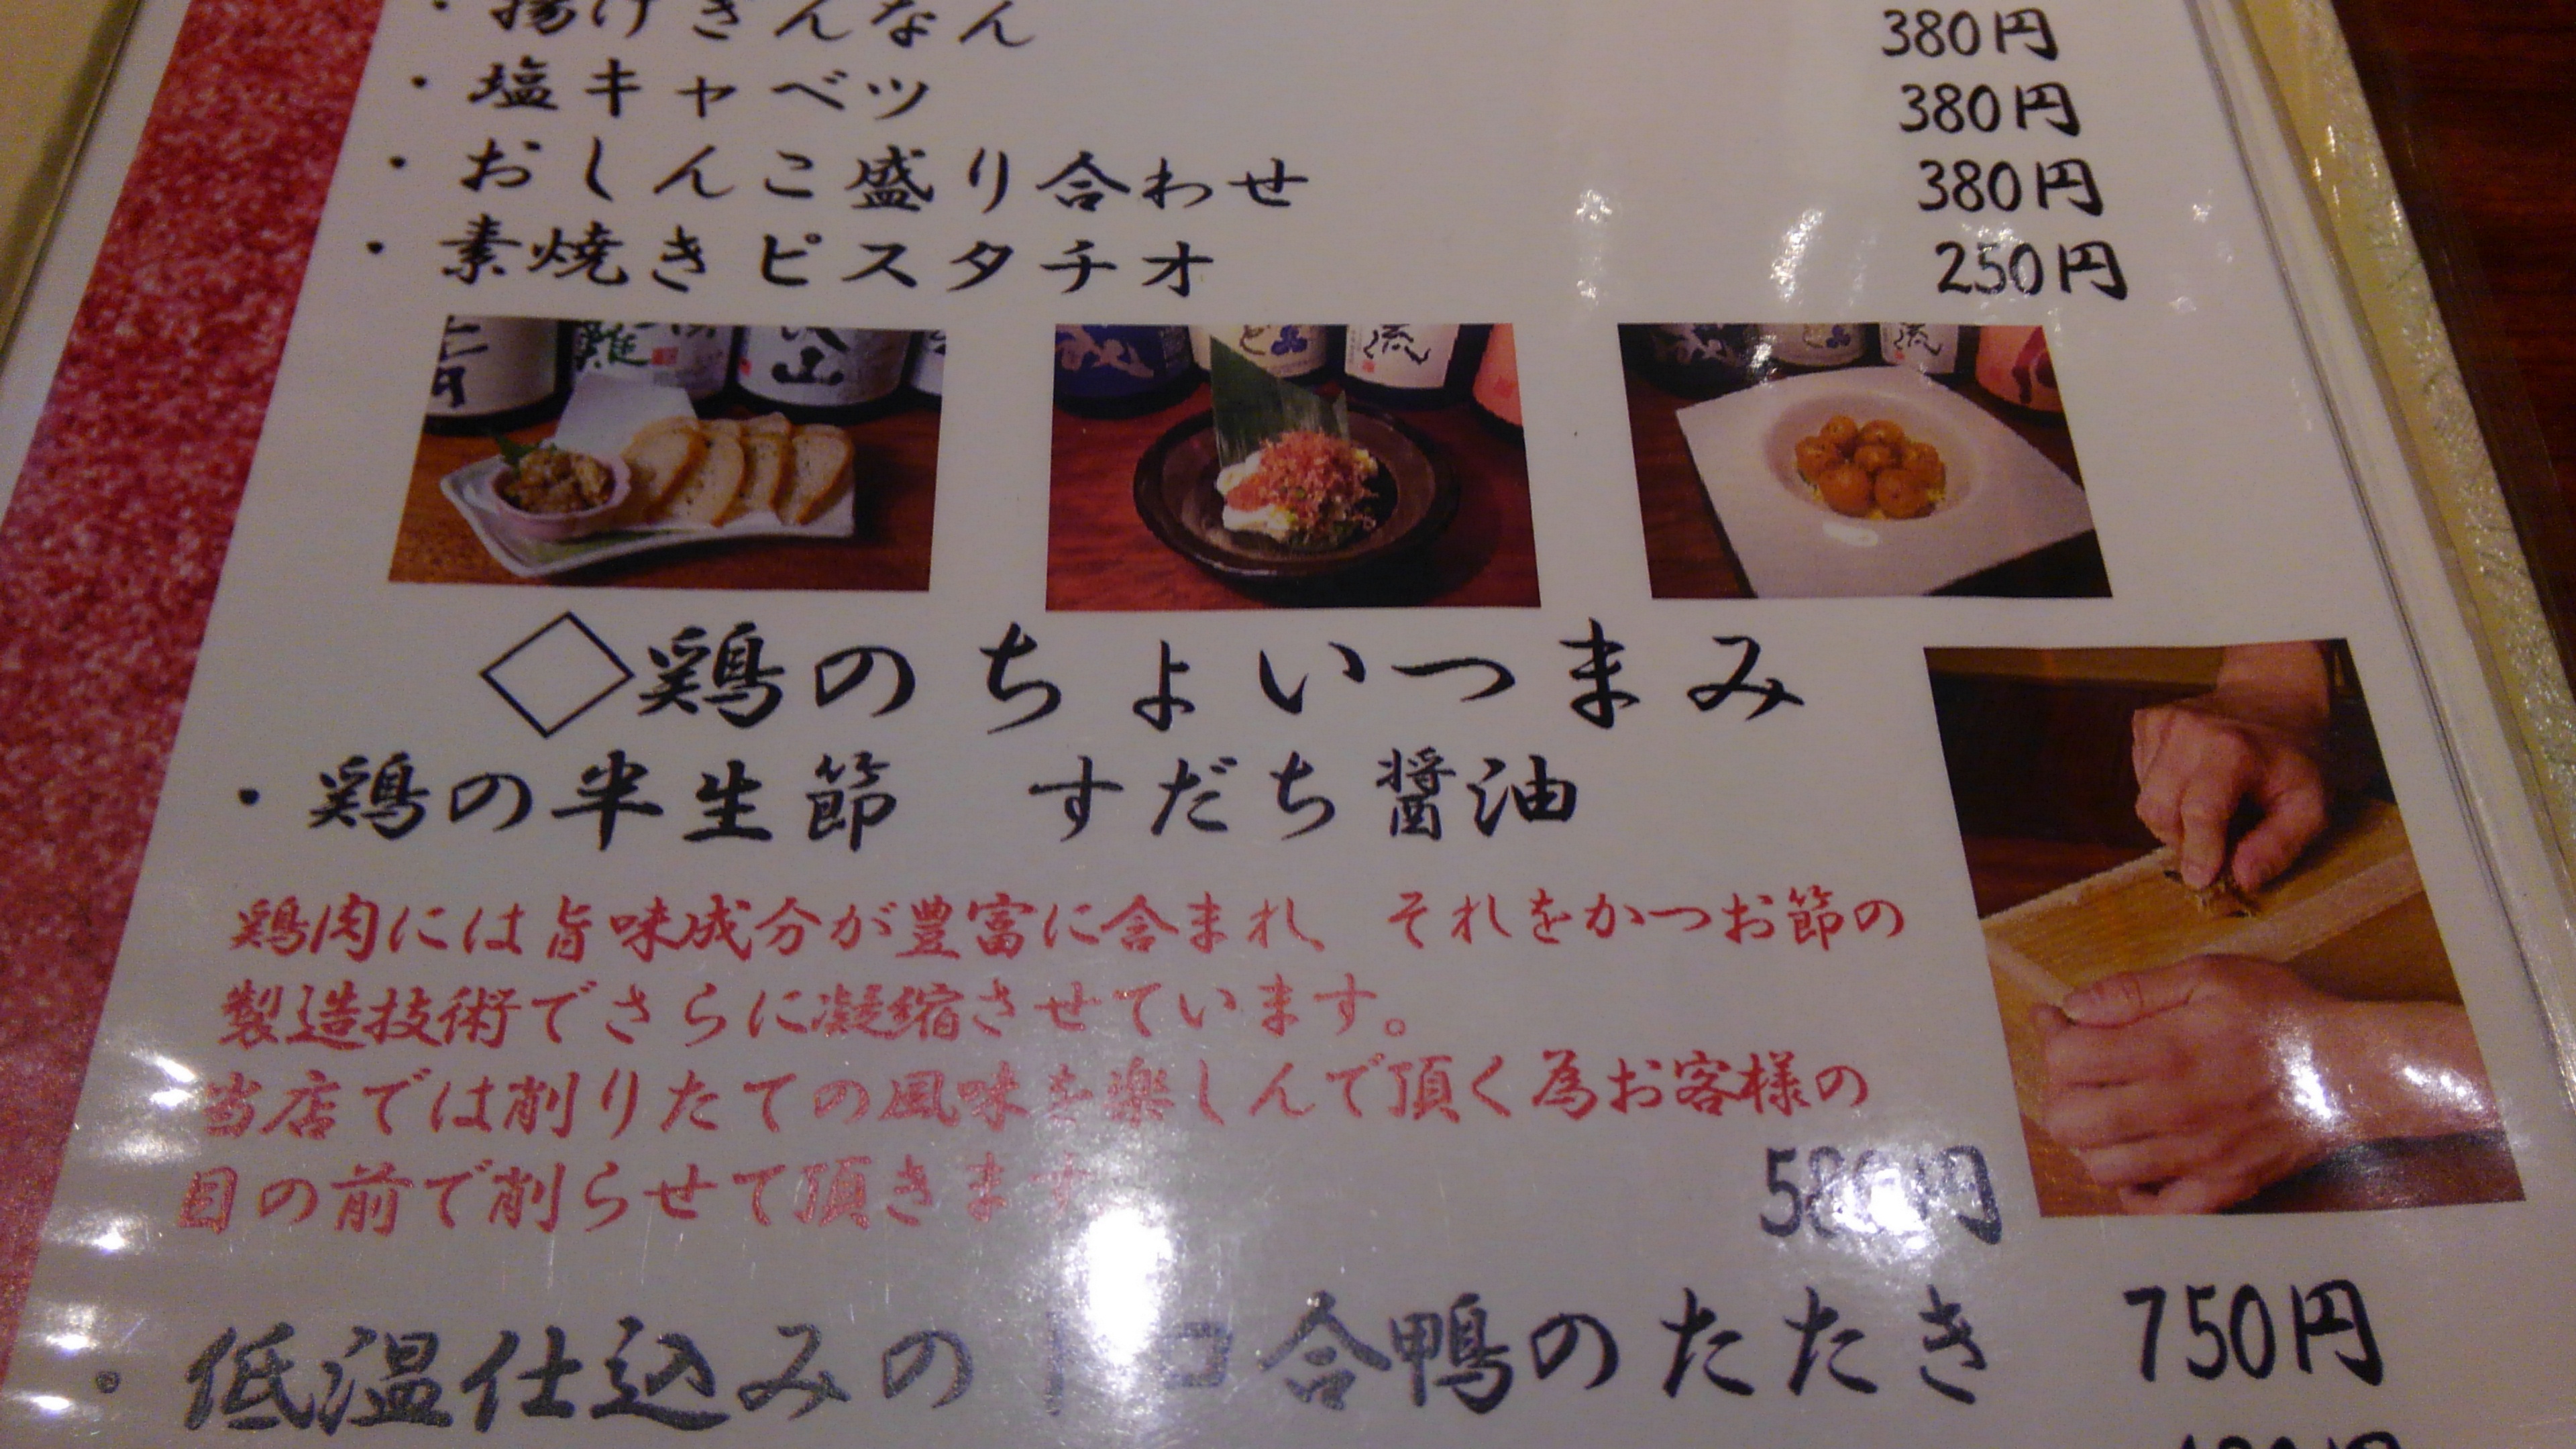 ・揚げぎんなん 380円
・塩キャベツ 380円
・おしんこ盛り合わせ 380円
・素焼きピスタチオ 250円
◇鶏のちょいつまみ
・鶏の半生節 すだち醤油
鶏肉には旨味成分が豊富に含まれ、それをかつお節の
製造技術でさらに凝縮させています。
当店では削りたての風味を楽しんで頂く為お客様の
目の前で削らせて頂きます
580円
・低温仕込みのトロ合鴨のたたき 750円